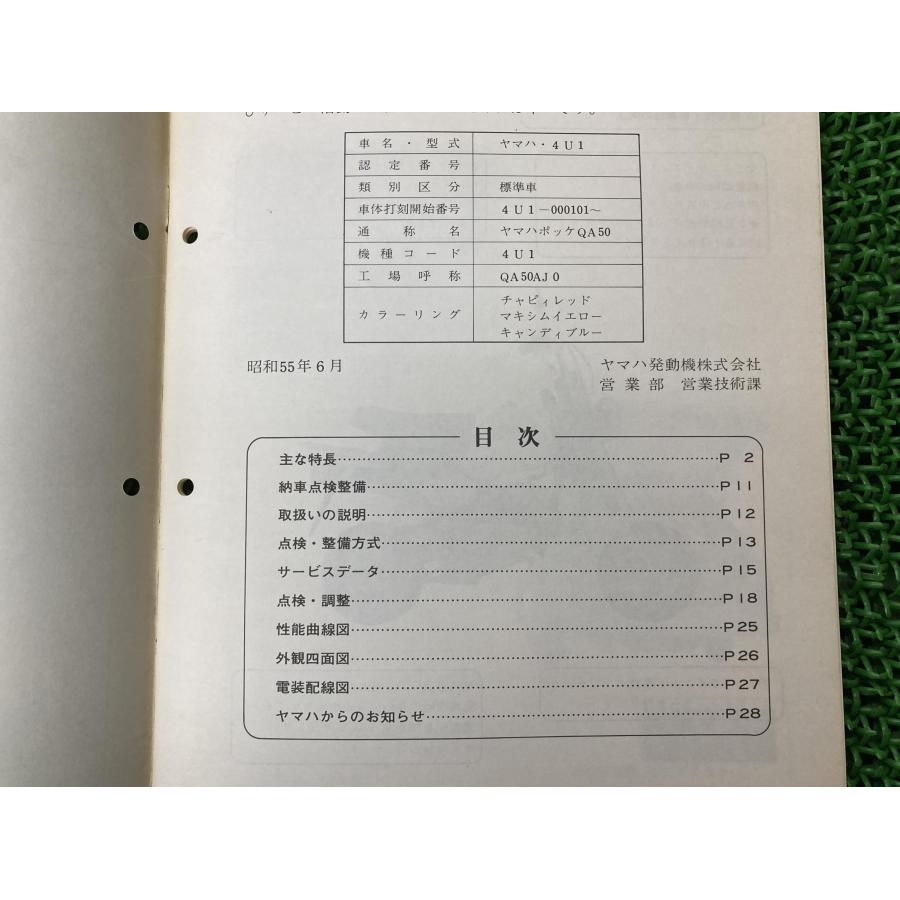 車名・型式 ヤマハ・4U1
認定番号
類別区分 標準車
車体打刻開始番号 4U1-000101~
通称名 ヤマハポッケQA50
機種コード 4U1
工場呼称 QA50AJ0
カラーリング チャピィレッド
マキシムイエロー
キャンディブルー
昭和55年6月 ヤマハ発動機株式会社
営業部 営業技術課
目次
主な特長……P 2
納車点検整備……P11
取扱いの説明……P12
点検・整備方式……P13
サービスデータ……P15
点検・調整……P18
性能曲線図……P25
外観四面図……P26
電装配線図……P27
ヤマハからのお知らせ……P28